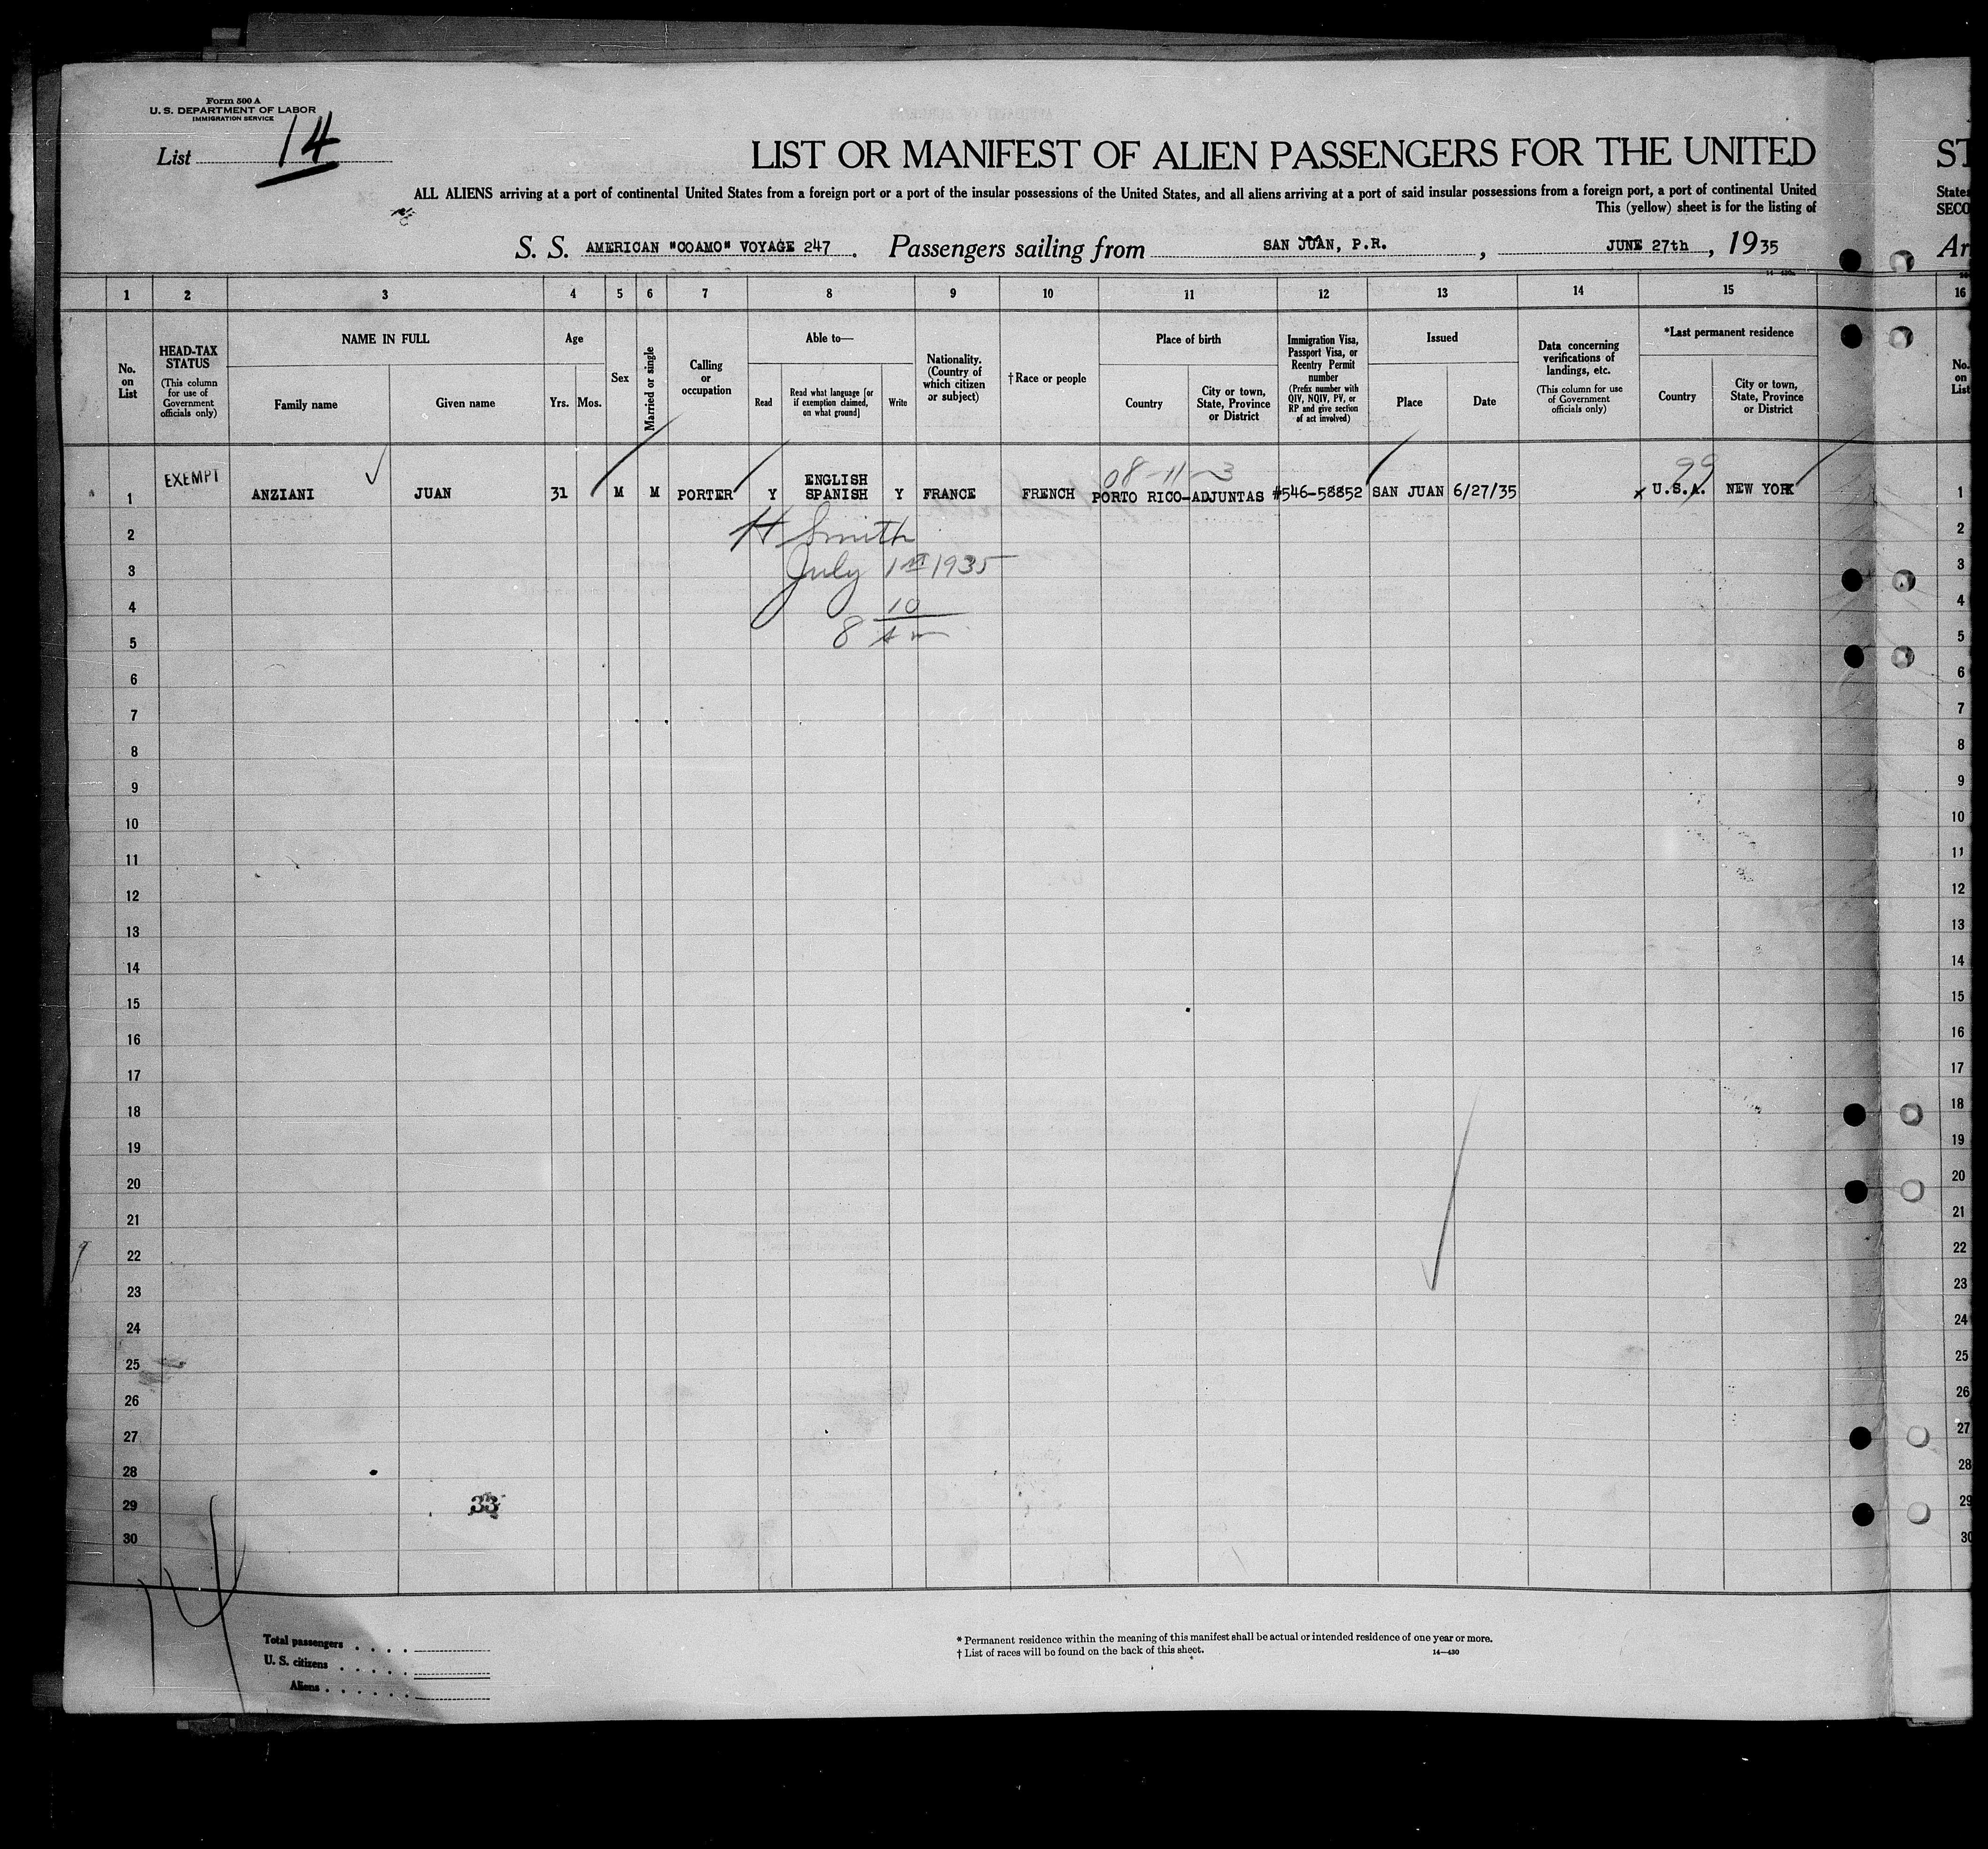 Form 500 A
U. S. DEPARTMENT OF LABOR
IMMIGRATION SERVICE
List 14
LIST OR MANIFEST OF ALIEN PASSENGERS FOR THE UNITED
ALL ALIENS arriving at a port of continental United States from a foreign port or a port of the insular possessions of the United States, and all aliens arriving at a port of said insular possessions from a foreign port, a port of continental United
This (yellow) sheet is for the listing of
S. S. AMERICAN "COAMO" VOYAGE 247. Passengers sailing from SAN JUAN, P.R., JUNE 27th, 1935
ST
States
SECO
Ar
1 2 3 4 5 6 7 8 9 10 11 12 13 14 15 16
No. on List
HEAD-TAX STATUS
(This column for use of Government officials only)
NAME IN FULL
Family name
Given name
Age
Yrs. Mos.
Sex
Married or single
Calling or occupation
Able to—
Read
Read what language [or if exemption claimed, on what ground]
Write
Nationality. (Country of which citizen or subject)
†Race or people
Place of birth
Country
City or town, State, Province or District
Immigration Visa, Passport Visa, or Reentry Permit number
(Prefix number with QIV, NQIV, PV, or RP and give section of act involved)
Issued
Place
Date
Data concerning verifications of landings, etc.
(This column for use of Government officials only)
*Last permanent residence
Country
City or town, State, Province or District
No. on List
08-11-3
99
1 EXEMPT ANZIANI JUAN 31 M M PORTER Y ENGLISH SPANISH Y FRANCE FRENCH PORTO RICO-ADJUNTAS #546-58852 SAN JUAN 6/27/35 x U.S.A. NEW YORK 1
2 H Smith 2
3 July 1st 1935 3
4 10 4
5 8 Am 5
6 6
7 7
8 8
9 9
10 10
11 11
12 12
13 13
14 14
15 15
16 16
17 17
18 18
19 19
20 20
21 21
22 22
23 23
24 24
25 25
26 26
27 27
28 28
29 33 29
30 30
14
Total passengers . . . .
U. S. citizens . . . . .
Aliens . . . . . .
* Permanent residence within the meaning of this manifest shall be actual or intended residence of one year or more.
† List of races will be found on the back of this sheet.
14—430